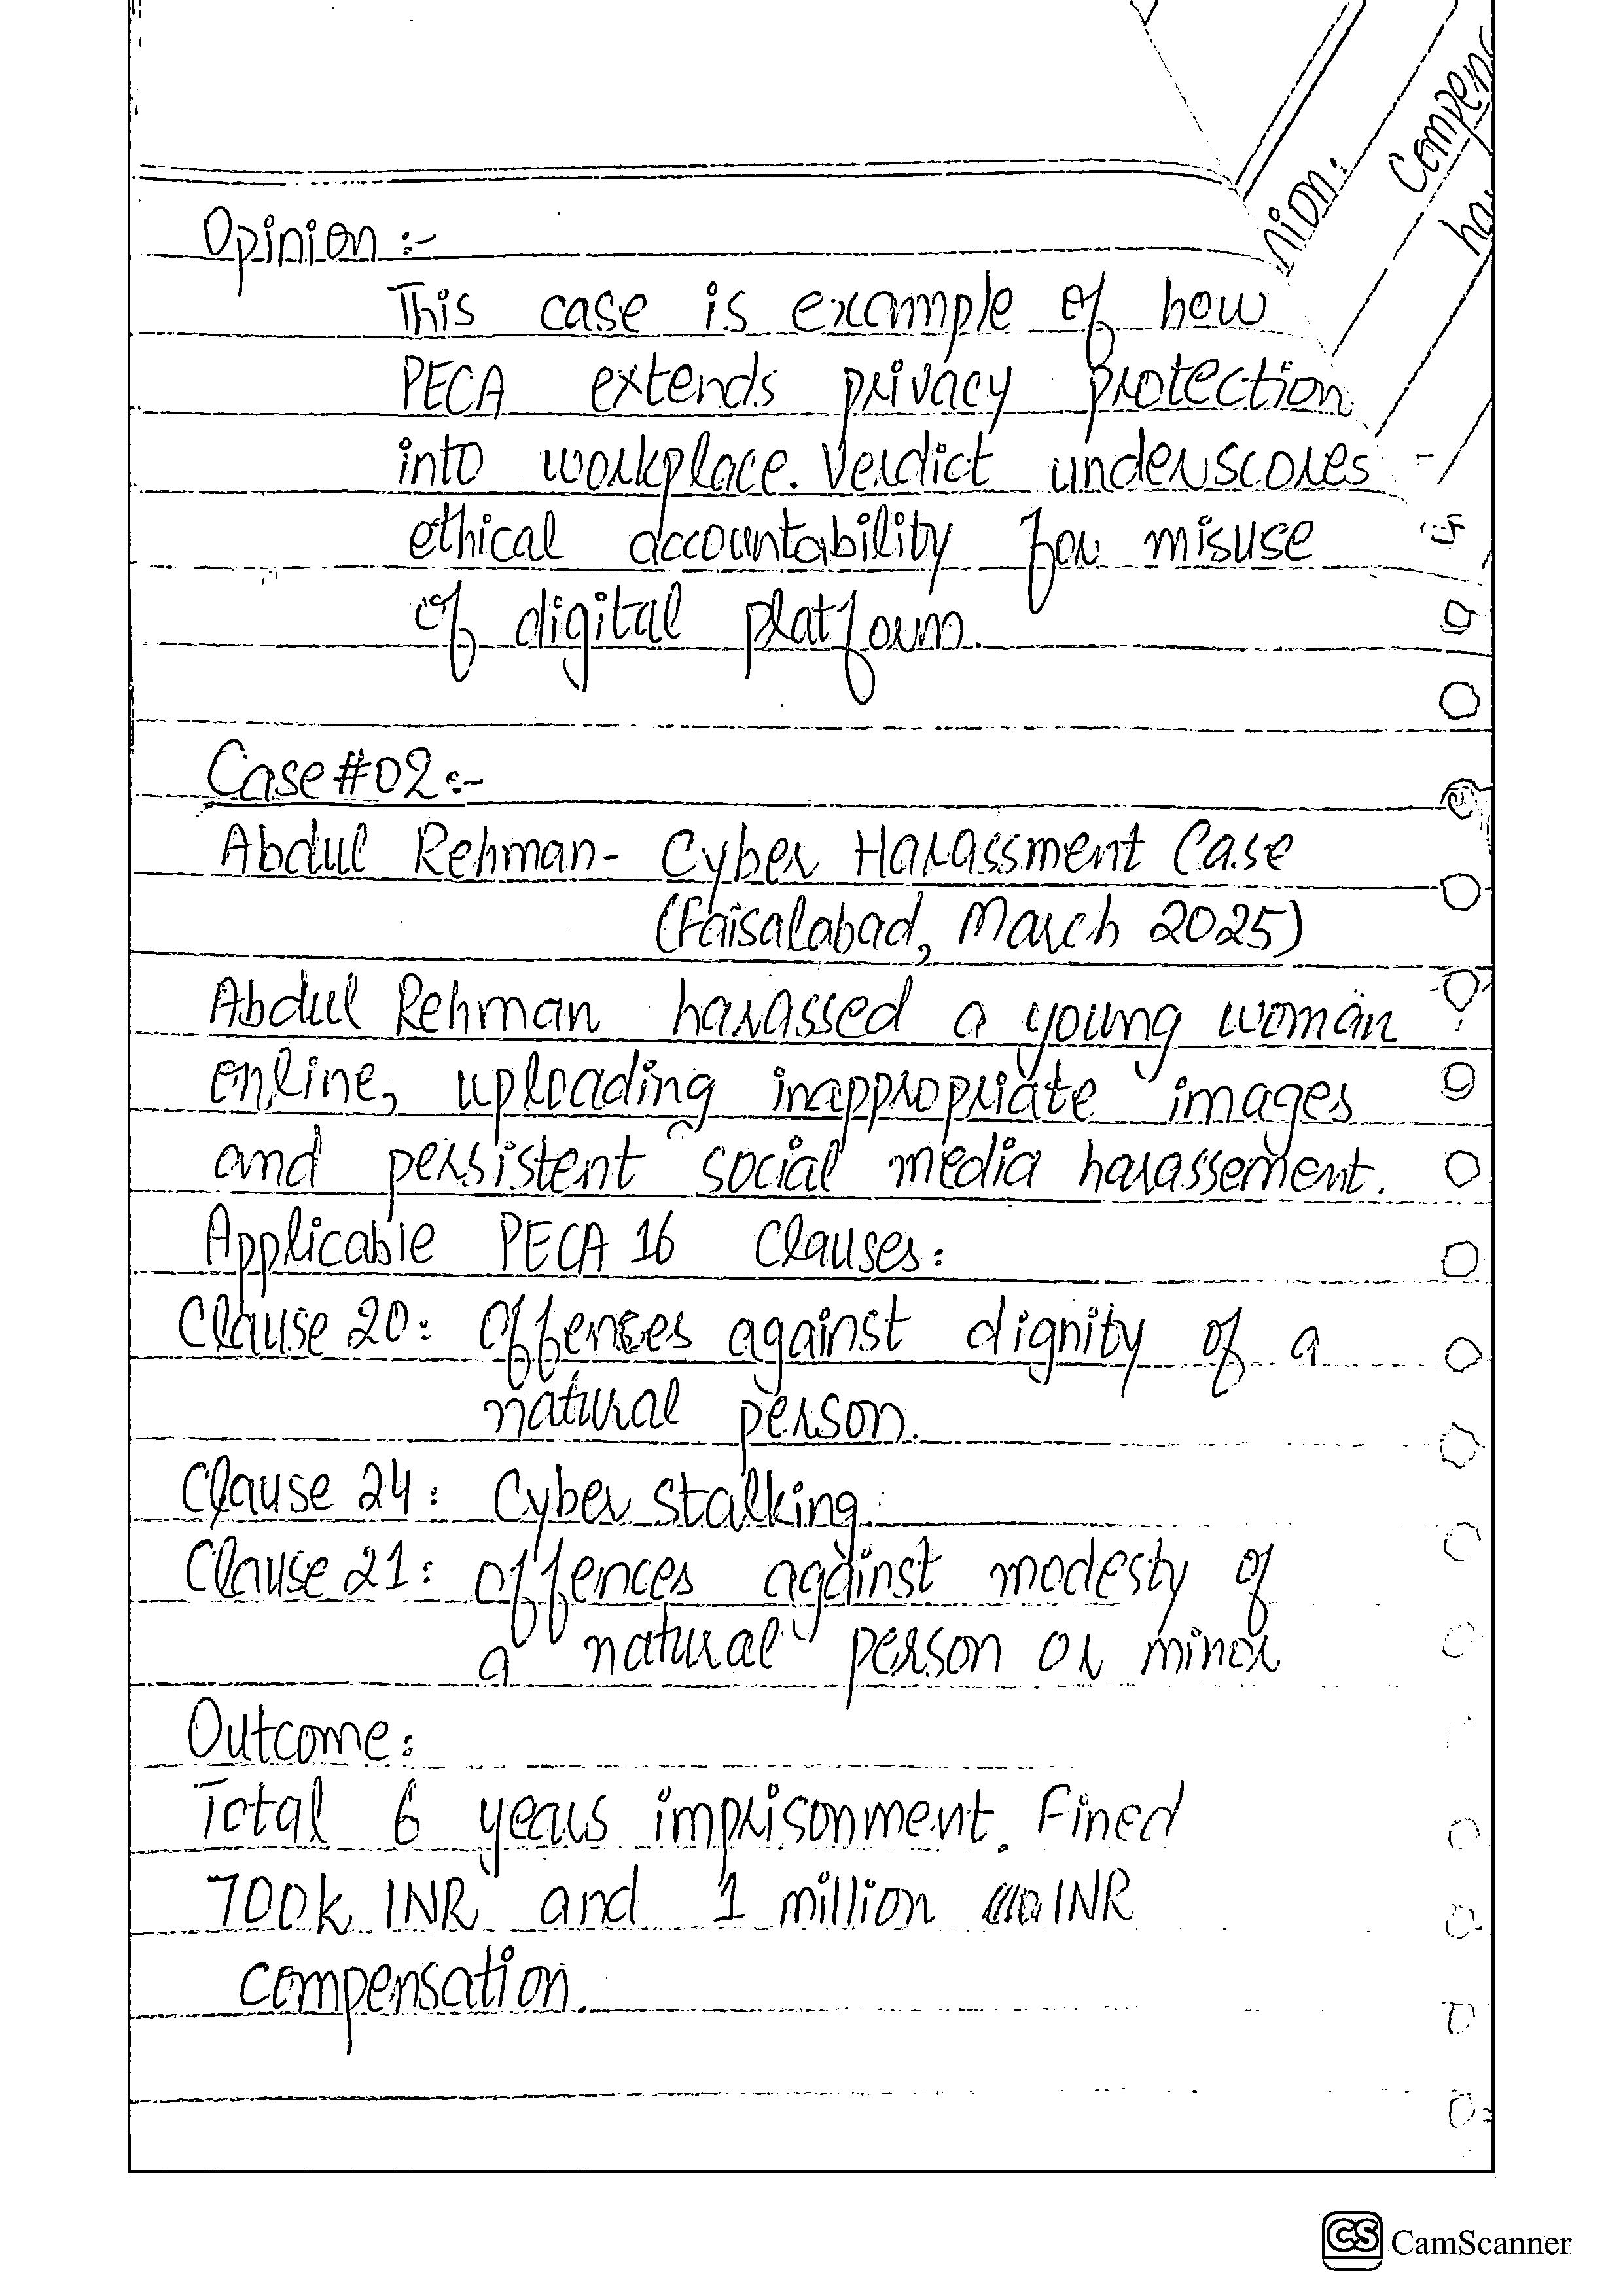 Opinion :-
This case is example of how
PECA extends privacy protection
into workplace. Verdict underscores
ethical accountability for misuse
of digital platform.
Case#02:-
Abdul Rehman- Cyber Harassment Case
(Faisalabad, March 2025)
Abdul Rehman harassed a young woman
online, uploading inappropriate images
and persistent social media harassement.
Applicable PECA 16 Clauses:
Clause 20: Offences against dignity of a
natural person.
Clause 24: Cyber Stalking.
Clause 21: offences against modesty of
a natural person or minor
Outcome:
Total 6 years imprisonment. Fined
700k INR and 1 million INR
compensation.
nion:
Compen
ha
CS CamScanner